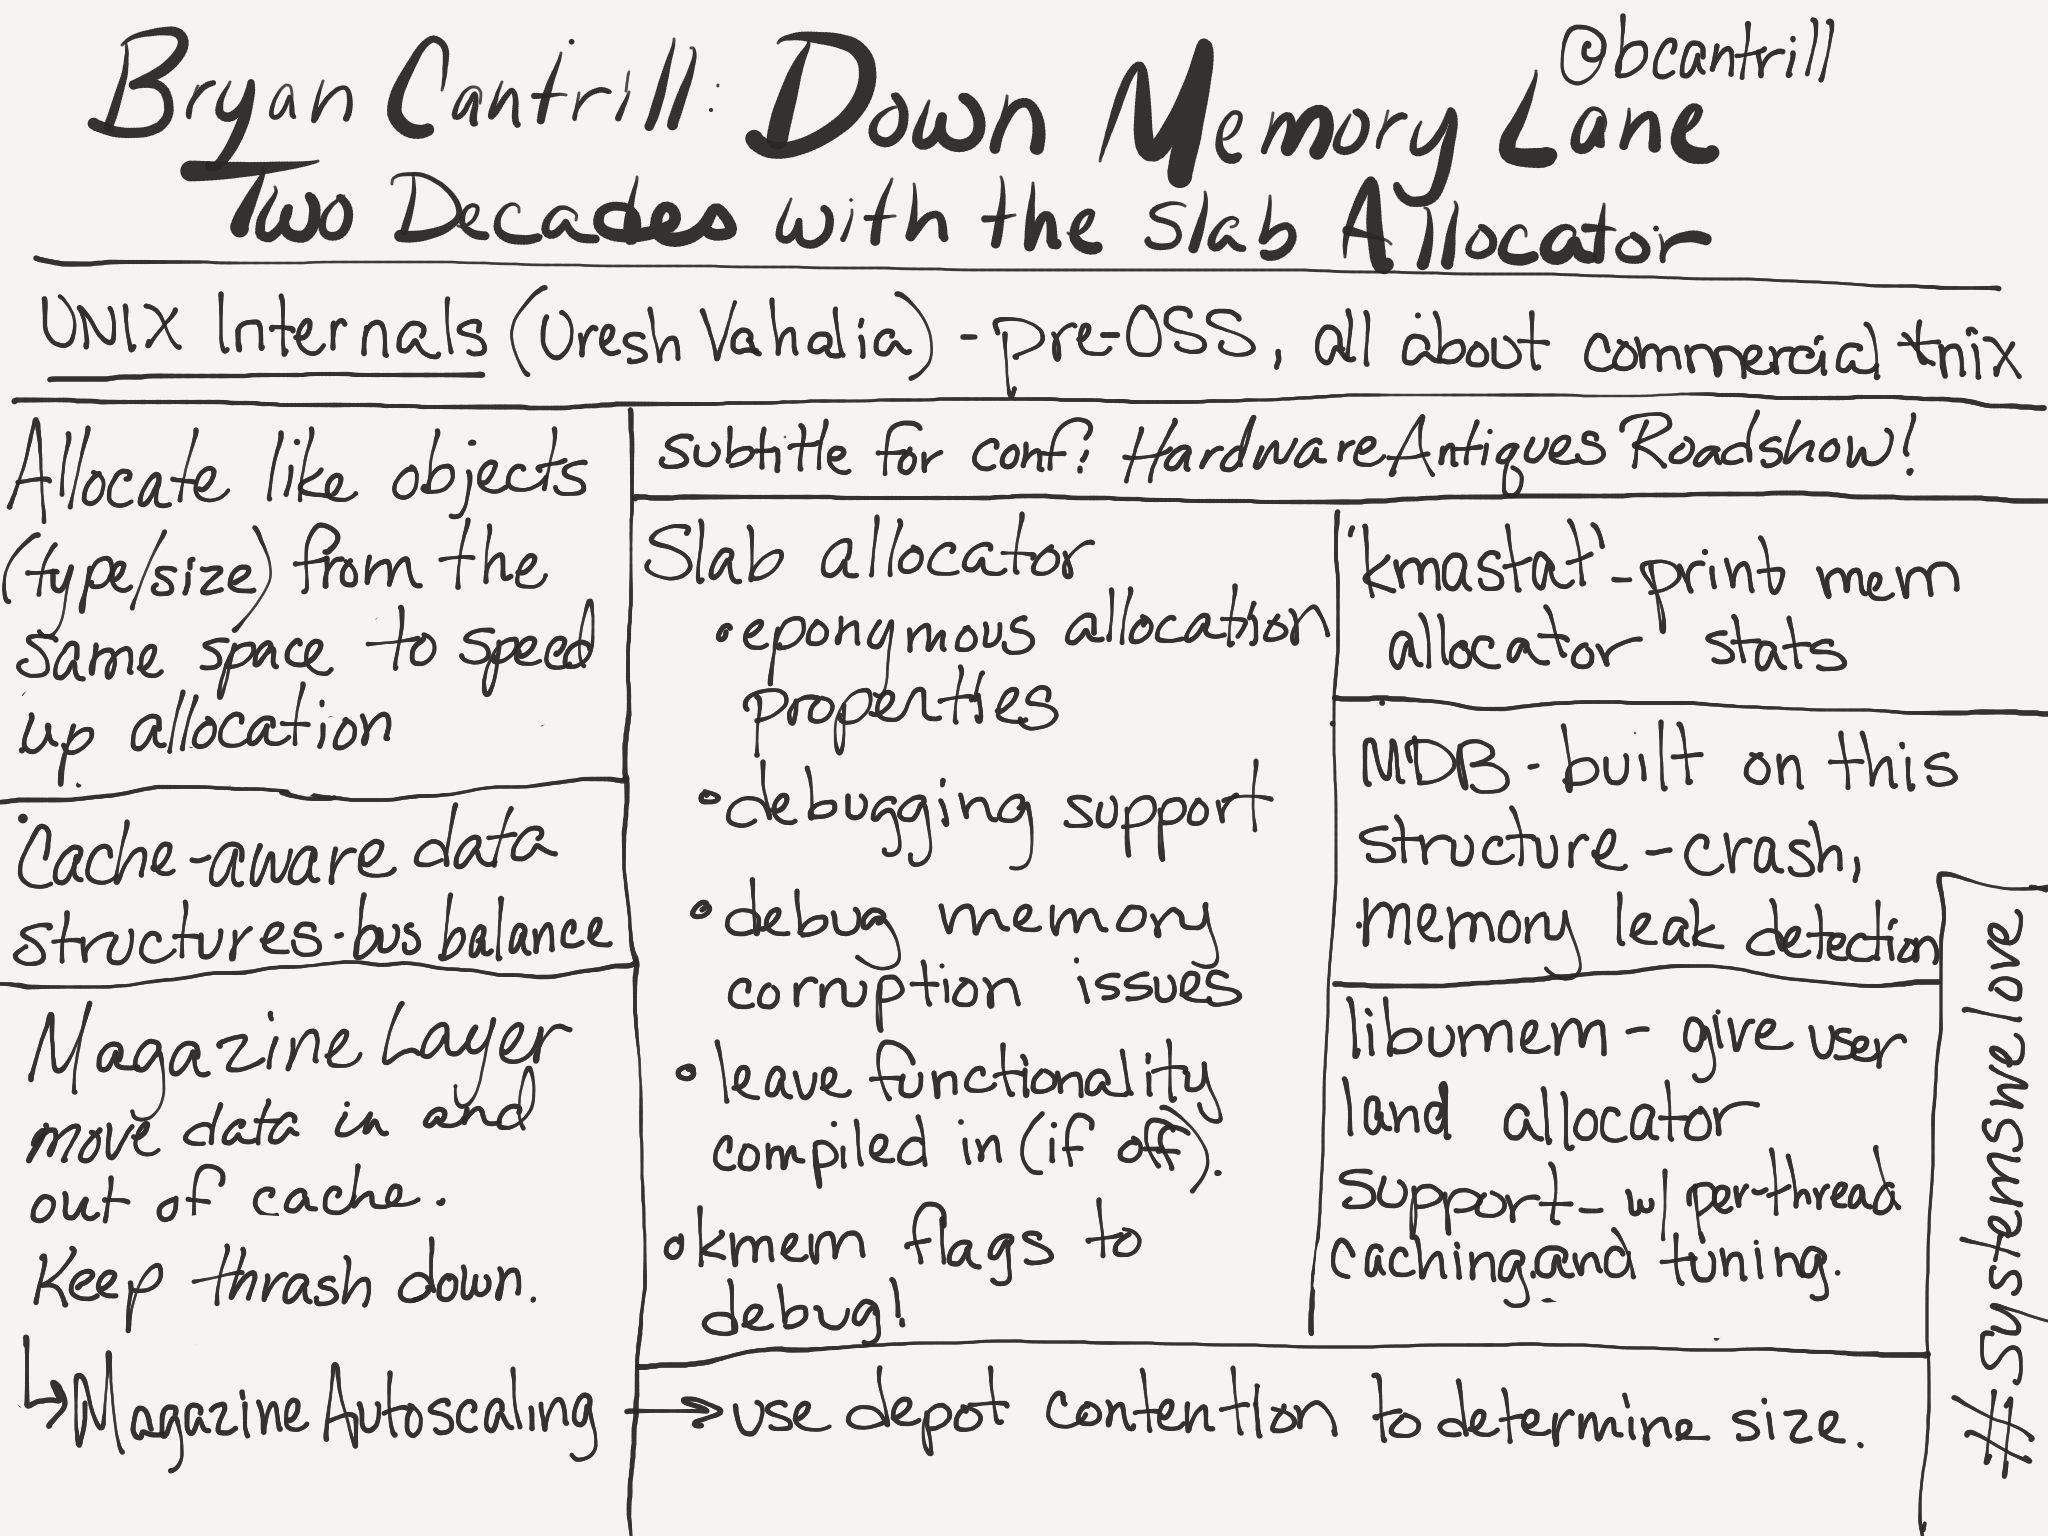 @bcantrill
Bryan Cantrill: Down Memory Lane
Two Decades with the Slab Allocator
UNIX Internals (Uresh Vahalia) - pre-OSS, all about commercial *nix
Allocate like objects
(type/size) from the
same space to speed
up allocation
Cache-aware data
structures - bus balance
Magazine Layer
move data in and
out of cache.
Keep thrash down.
↳Magazine Autoscaling → use depot contention to determine size.
subtitle for conf? Hardware Antiques Roadshow!
Slab allocator
• eponymous allocation
properties
• debugging support
• debug memory
corruption issues
• leave functionality
compiled in (if off).
• kmem flags to
debug!
"kmastat" - print mem
allocator stats
MDB - built on this
structure - crash,
memory leak detection
libumem - give user
land allocator
support - w/ per-thread
caching and tuning.
#systemswelove